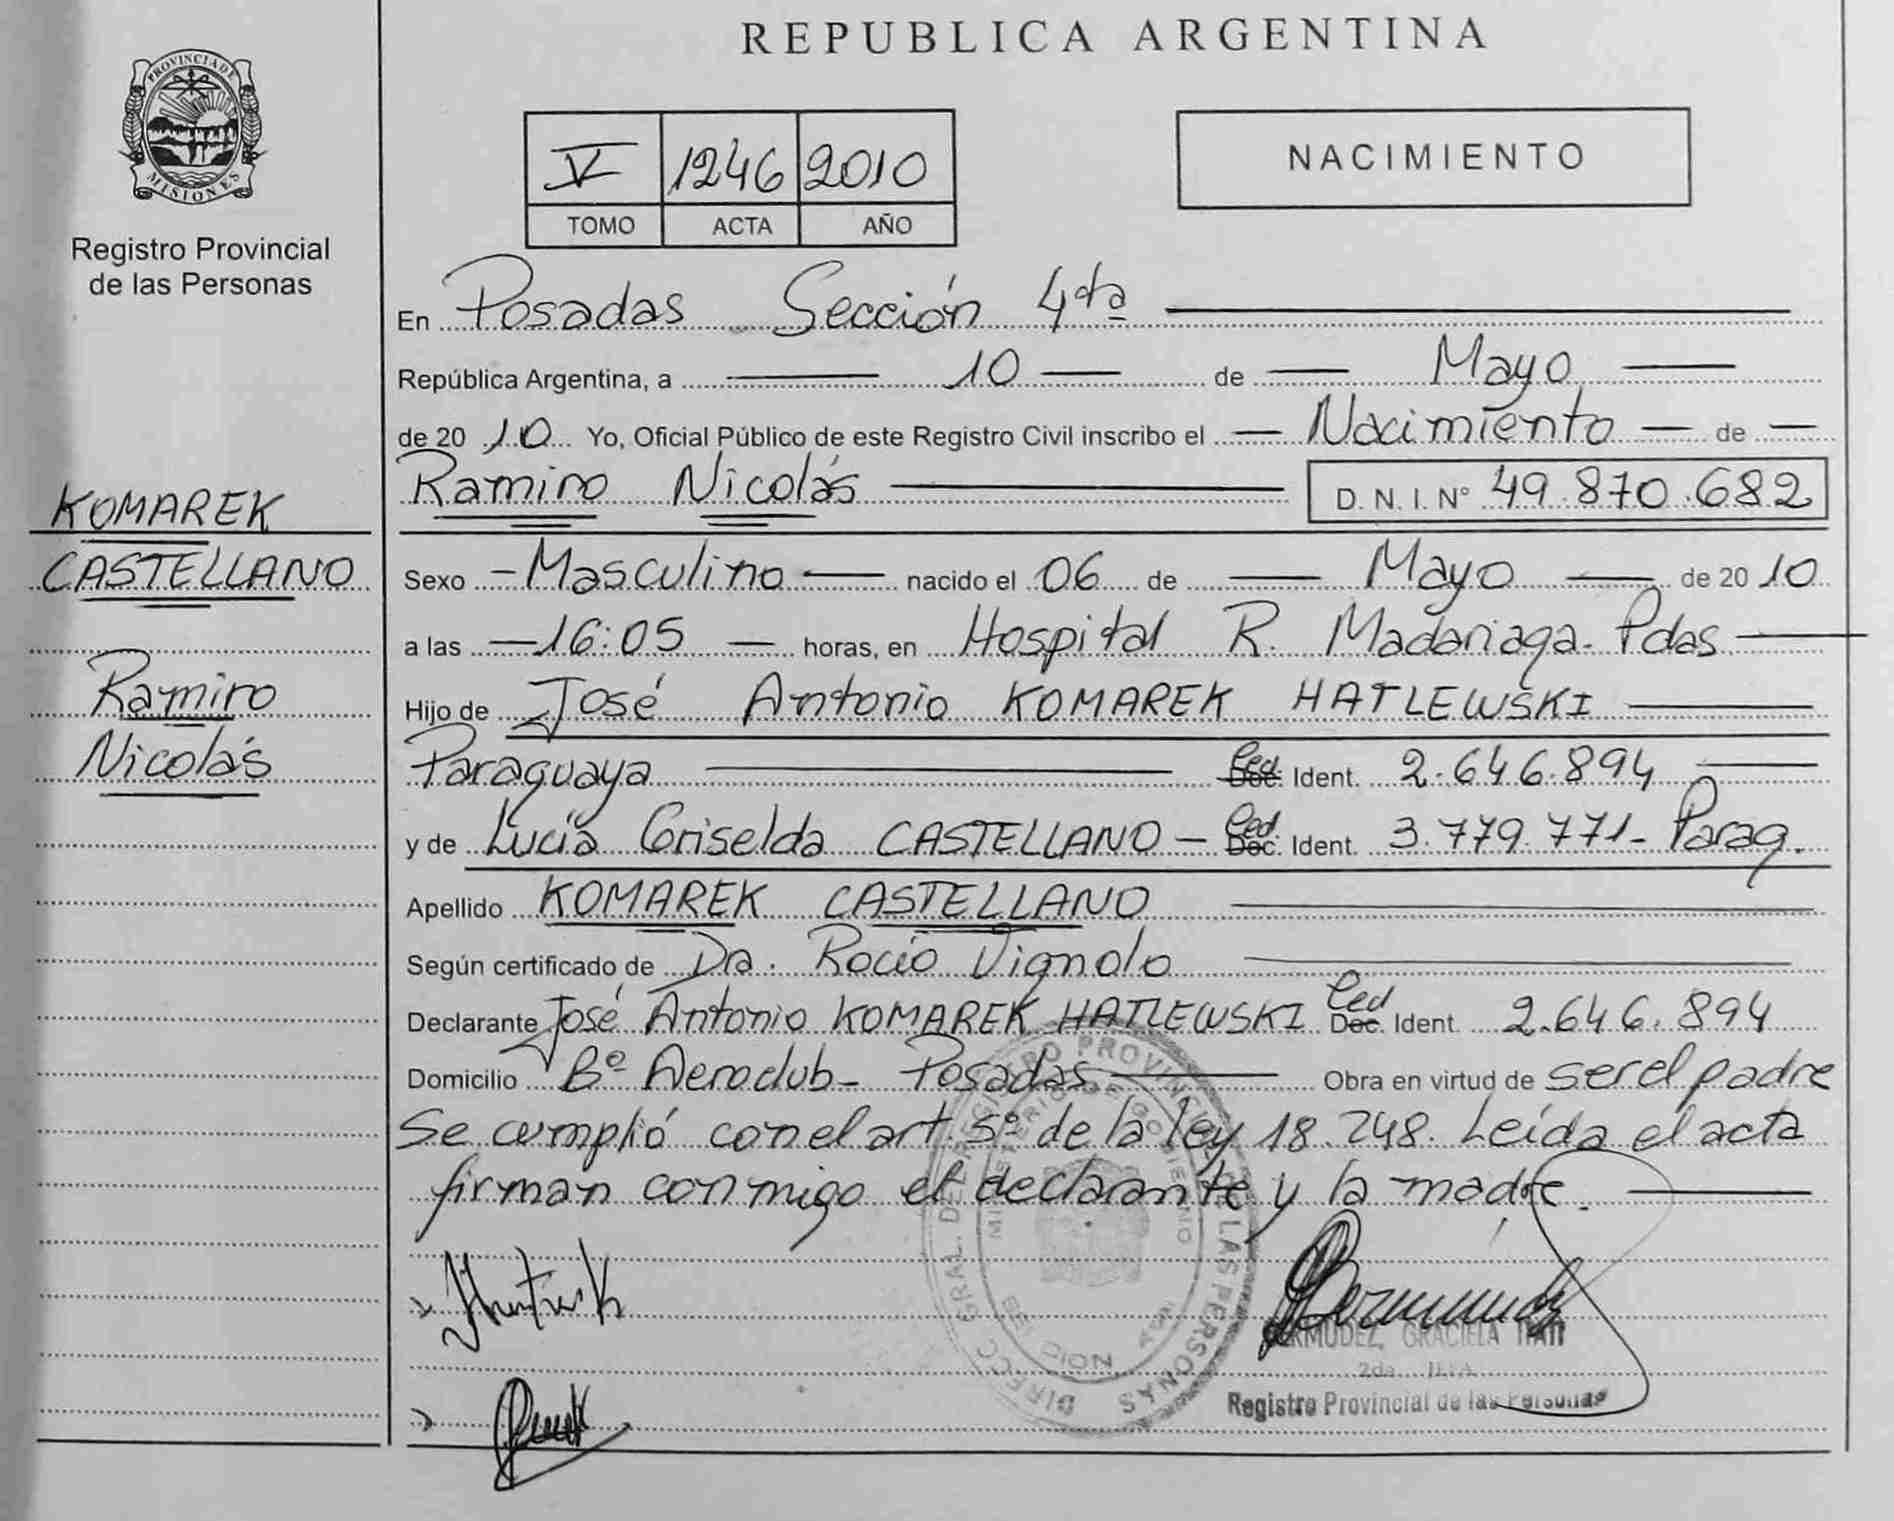 REPUBLICA ARGENTINA
PROVINCIA DE
MISIONES
Registro Provincial
de las Personas
V 1246 2010
TOMO ACTA AÑO
NACIMIENTO
En Posadas Sección 4ta
República Argentina, a 10 de Mayo
de 20 10 Yo, Oficial Público de este Registro Civil inscribo el Nacimiento de
Ramiro Nicolás D. N. I. N° 49.870.682
KOMAREK
CASTELLANO
Ramiro
Nicolás
Sexo Masculino nacido el 06 de Mayo de 20 10
a las 16:05 horas, en Hospital R. Madariaga. Pdas
Hijo de José Antonio KOMAREK HATLEWSKI
Paraguaya Ced. Doc. Ident. 2.646.894
y de Lucía Griselda CASTELLANO Ced. Doc. Ident. 3.779.771- Parag.
Apellido KOMAREK CASTELLANO
Según certificado de Dra. Rocío Vignolo
Declarante José Antonio KOMAREK HATLEWSKI Ced Doc. Ident. 2.646.894
Domicilio Bº Aeroclub - Posadas Obra en virtud de ser el padre
Se cumplió con el art. 5º de la ley 18.248. Leída el acta
firman conmigo el declarante y la madre.
DIRECC. GRAL. DEL REGISTRO PROVINCIAL DE LAS PERSONAS
MINISTERIO DE GOBIERNO
BERMUDEZ, GRACIELA
2da
Registro Provincial de las Personas